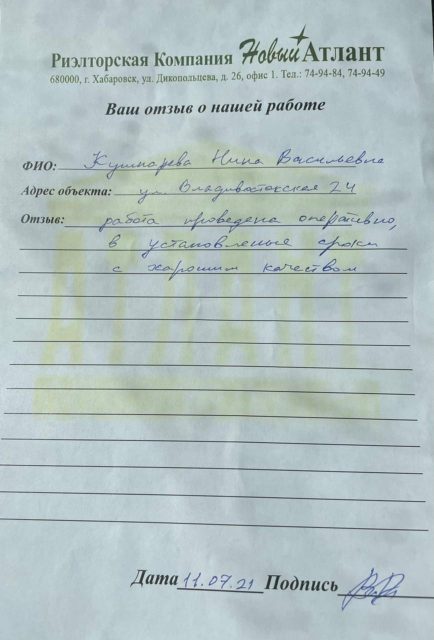 Риэлторская Компания Новый Атлант
680000, г. Хабаровск, ул. Дикопольцева, д. 26, офис 1. Тел.: 74-94-84, 74-94-49
Ваш отзыв о нашей работе
ФИО: Кушнарева Нина Васильевна
Адрес объекта: ул. Владивостокская 24
Отзыв: работа проведена оперативно,
в установленные сроки
с хорошим качеством
АТЛАНТ
Дата 11.07.21 Подпись